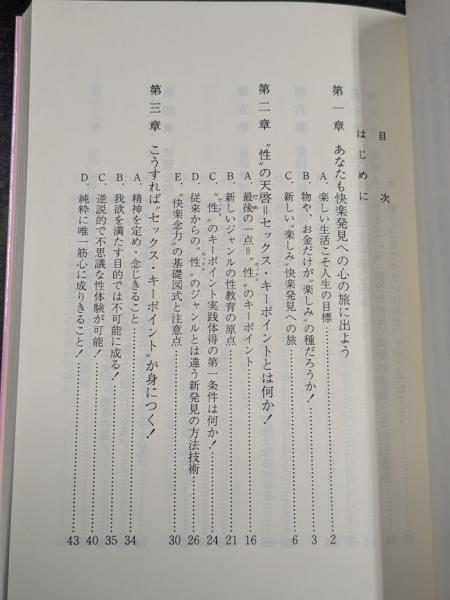 目次
はじめに
第一章 あなたも快楽発見への心の旅に出よう
A、楽しい生活こそ人生の目標……2
B、物や、お金だけが〝楽しみ〟の種だろうか！……3
C、新しい〝楽しみ〟快楽発見への旅……6
第二章 〝性〟の天啓＝セックス・キーポイントとは何か！
A、最後の一点＝〝性〟のキーポイント……16
B、新しいジャンルの性教育の原点……21
C、〝性〟のキーポイント実践体得の第一条件は何か！……24
D、従来からの〝性〟のジャンルとは違う新発見の方法技術……26
E、〝快楽念力〟の基礎図式と注意点……30
第三章 こうすれば〝セックス・キーポイント〟が身につく！
A、精神を定め、念じきること……34
B、我欲を満たす目的では不可能に成る！……35
C、逆説的で不思議な性体験が可能！……40
D、純粋に唯一筋心に成りきること！……43